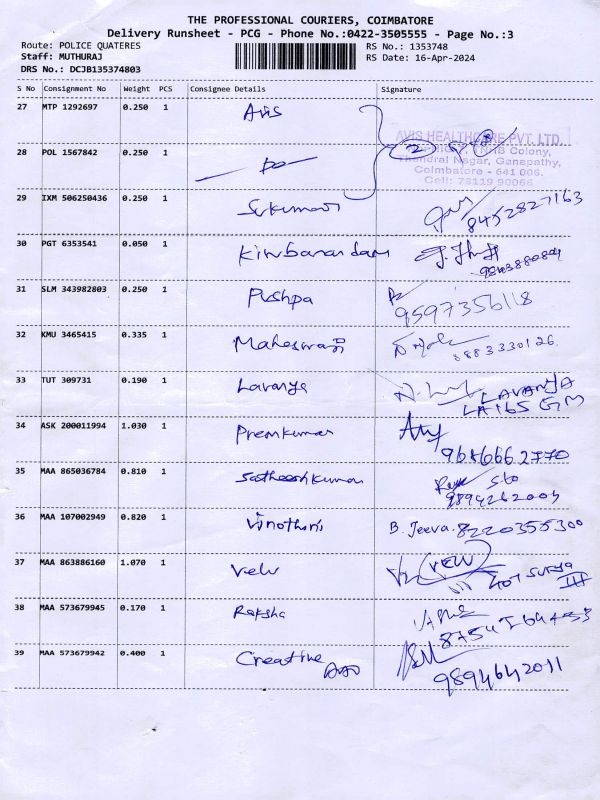 THE PROFESSIONAL COURIERS, COIMBATORE
Delivery Runsheet - PCG - Phone No.:0422-3505555 - Page No.:3
Route: POLICE QUATERES RS No.: 1353748
Staff: MUTHURAJ RS Date: 16-Apr-2024
DRS No.: DCJB135374803
S No Consignment No Weight PCS Consignee Details Signature
27 MTP 1292697 0.250 1 Avis
AVIS HEALTHCARE PVT. LTD.
28 POL 1567842 0.250 1 2
Colony,
Nagar, Ganapathy,
Coimbatore - 641 006.
Cell: 78119 90066
29 IXM 506250436 0.250 1 Sukumar 8452827163
30 PGT 6353541 0.050 1 Kirubanandam
31 SLM 343982803 0.250 1 Pushpa
9597356118
32 KMU 3465415 0.335 1 Maheswari
8883330126
33 TUT 309731 0.190 1 Lavanya LAVANYA
34 ASK 200011994 1.030 1 Premkumar
35 MAA 865036784 0.810 1 Satheesh Kumar S/o
9894262003
36 MAA 107002949 0.820 1 Vinothini B. Jeeva. 8220355300
37 MAA 863886160 1.070 1 Velu VELU
38 MAA 573679945 0.170 1 Raksha
39 MAA 573679942 0.400 1 Creative
9894642011